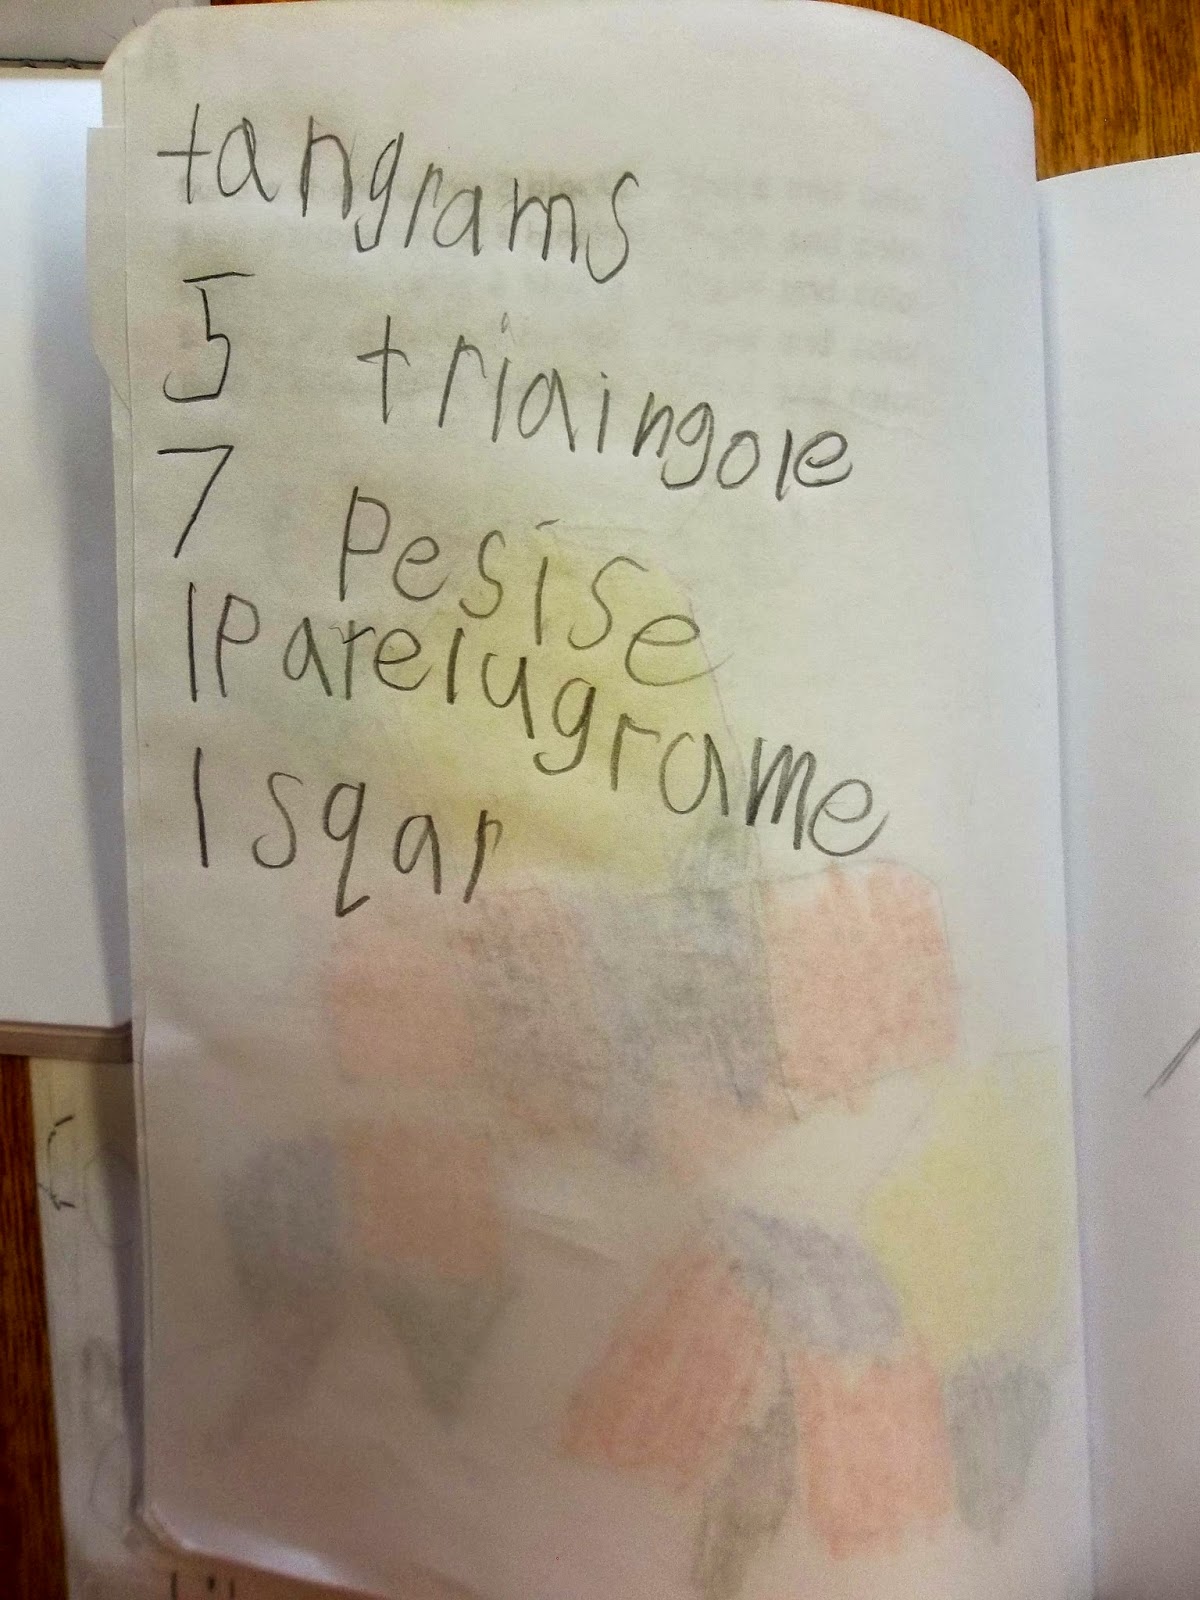 tangrams
5 triaingole
7 Pesise
1 Parelugrame
1 sqar